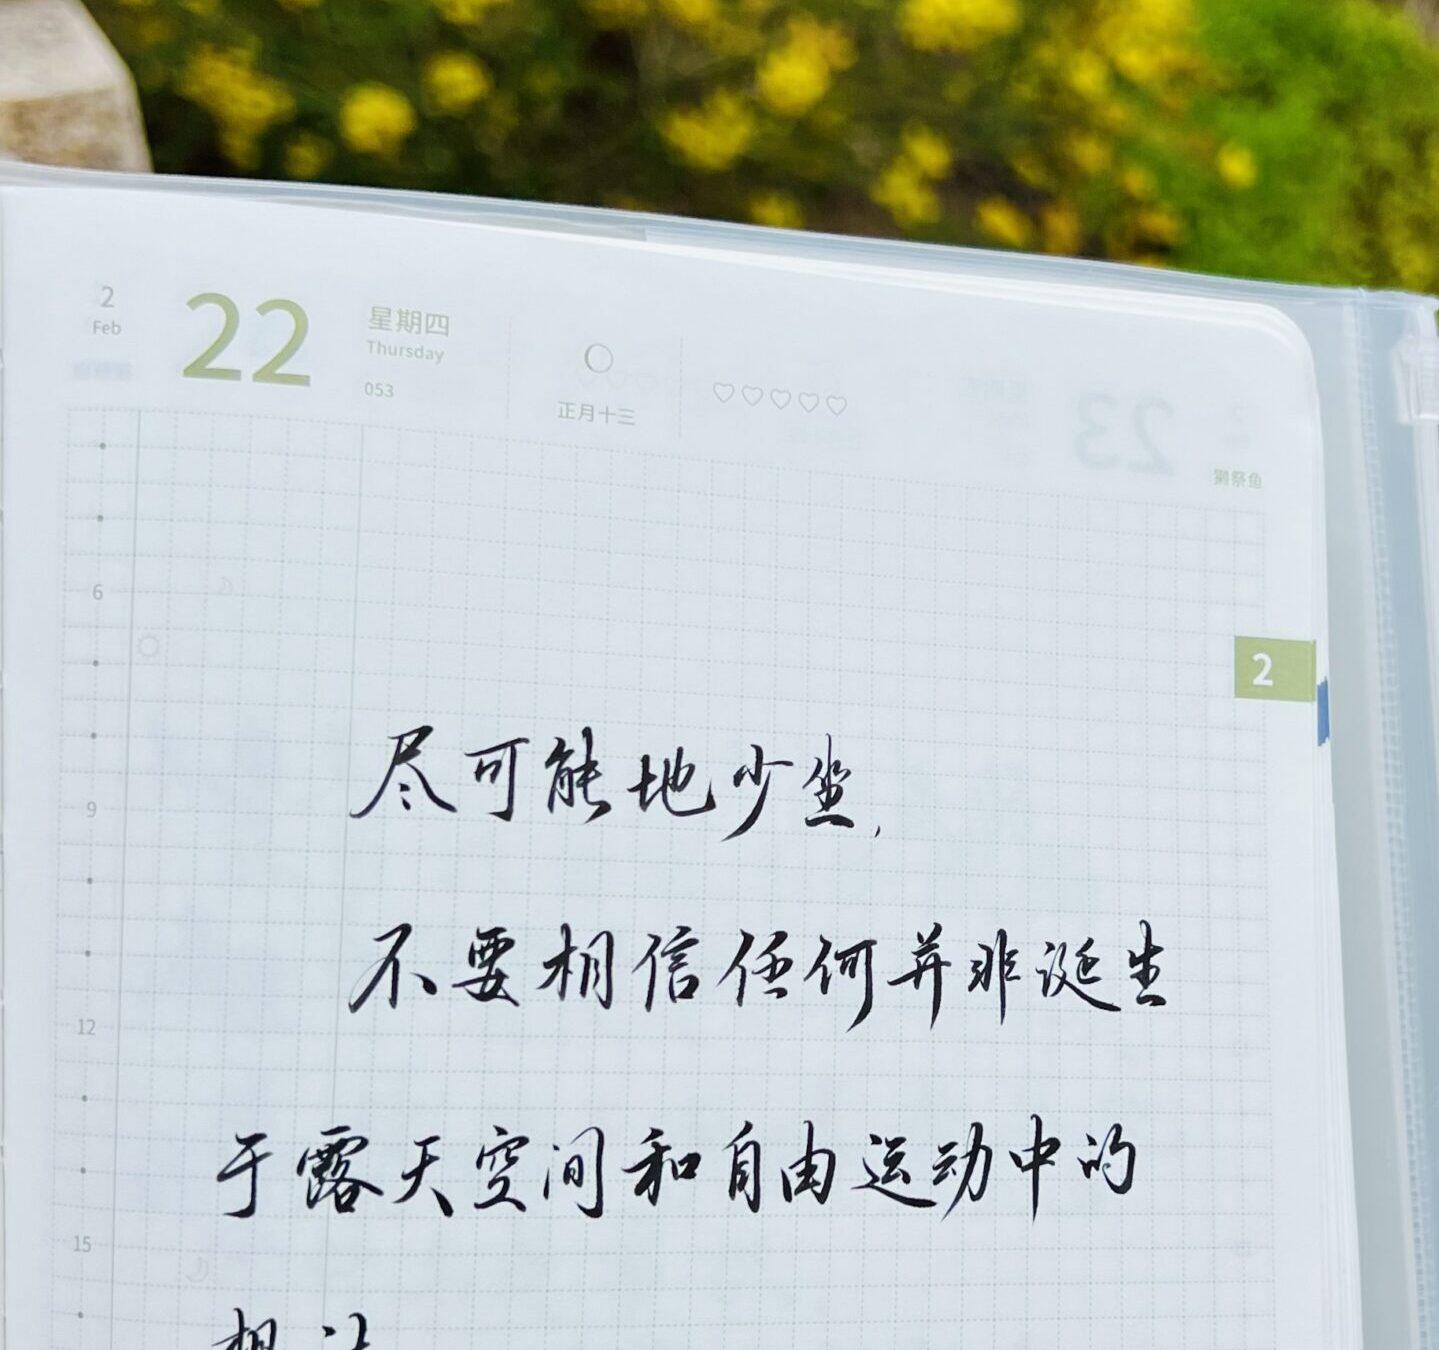 2
Feb
22
星期四
Thursday
053
正月十三
獭祭鱼
6
2
尽可能地少坐,
9
不要相信任何并非诞生
12
于露天空间和自由运动中的
15
想法